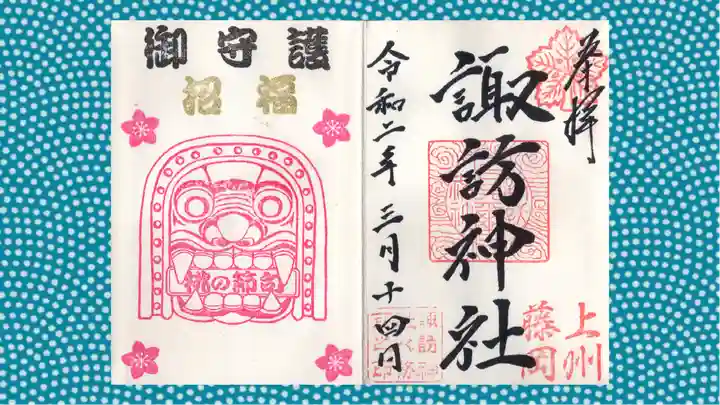 奉拝
諏訪神社
上州
藤岡
令和二年三月十四日
御守護
招福
桃の節句